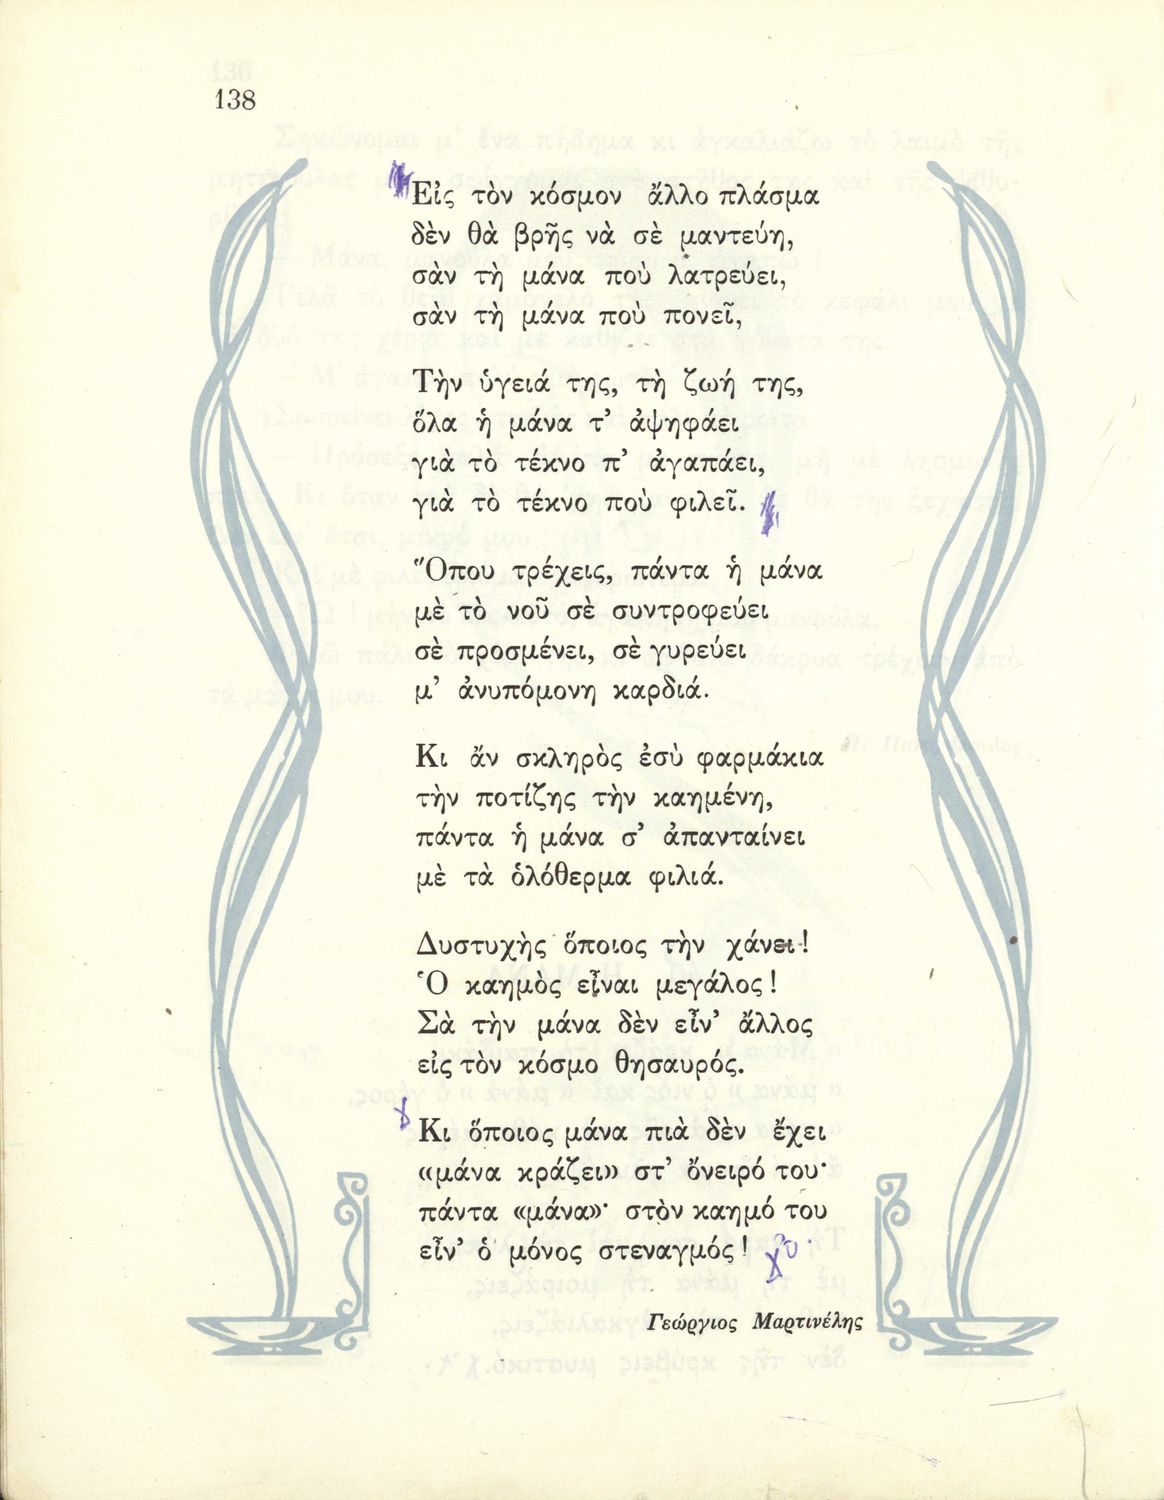 138
Εἰς τὸν κόσμον ἄλλο πλάσμα
δὲν θὰ βρῆς νὰ σὲ μαντεύη,
σὰν τὴ μάνα ποὺ λατρεύει,
σὰν τὴ μάνα ποὺ πονεῖ,
Τὴν ὑγειά της, τὴ ζωή της,
ὅλα ἡ μάνα τ’ ἀψηφάει
γιὰ τὸ τέκνο π’ ἀγαπάει,
γιὰ τὸ τέκνο ποὺ φιλεῖ.
Ὅπου τρέχεις, πάντα ἡ μάνα
μὲ τὸ νοῦ σὲ συντροφεύει
σὲ προσμένει, σὲ γυρεύει
μ’ ἀνυπόμονη καρδιά.
Κι ἄν σκληρὸς ἐσὺ φαρμάκια
τὴν ποτίζης τὴν καημένη,
πάντα ἡ μάνα σ’ ἀπανταίνει
μὲ τὰ ὁλόθερμα φιλιά.
Δυστυχὴς ὅποιος τὴν χάνει!
Ὁ καημὸς εἶναι μεγάλος!
Σὰ τὴν μάνα δὲν εἶν’ ἄλλος
εἰς τὸν κόσμο θησαυρός.
Κι ὅποιος μάνα πιὰ δὲν ἔχει
«μάνα κράζει» στ’ ὄνειρό του·
πάντα «μάνα»· στὸν καημό του
εἶν’ ὁ μόνος στεναγμός!
Γεώργιος Μαρτινέλης